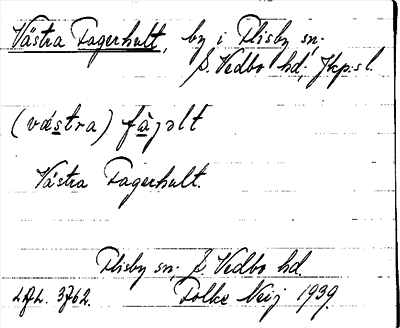 Västra Fagerhult, by i Flisby sn;
S. Vedbo hd, Jkp:sl.
(västra) fàjəlt
Västra Fagerhult.
Flisby sn; S. Vedbo hd.
3762. Folke Neij 1939.